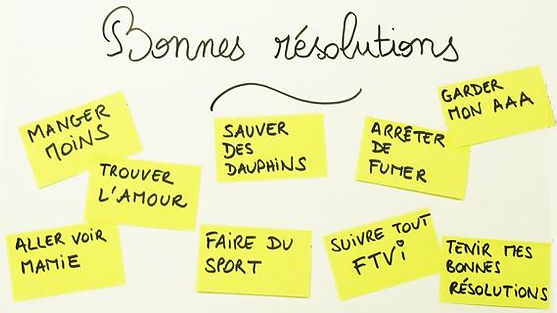 Bonnes résolutions
GARDER
MON AAA
MANGER
MOINS
SAUVER
DES
DAUPHINS
ARRÊTER
DE
FUMER
TROUVER
L'AMOUR
ALLER VOIR
MAMIE
FAIRE DU
SPORT
SUIVRE TOUT
FTVi
TENIR MES
BONNES
RÉSOLUTIONS